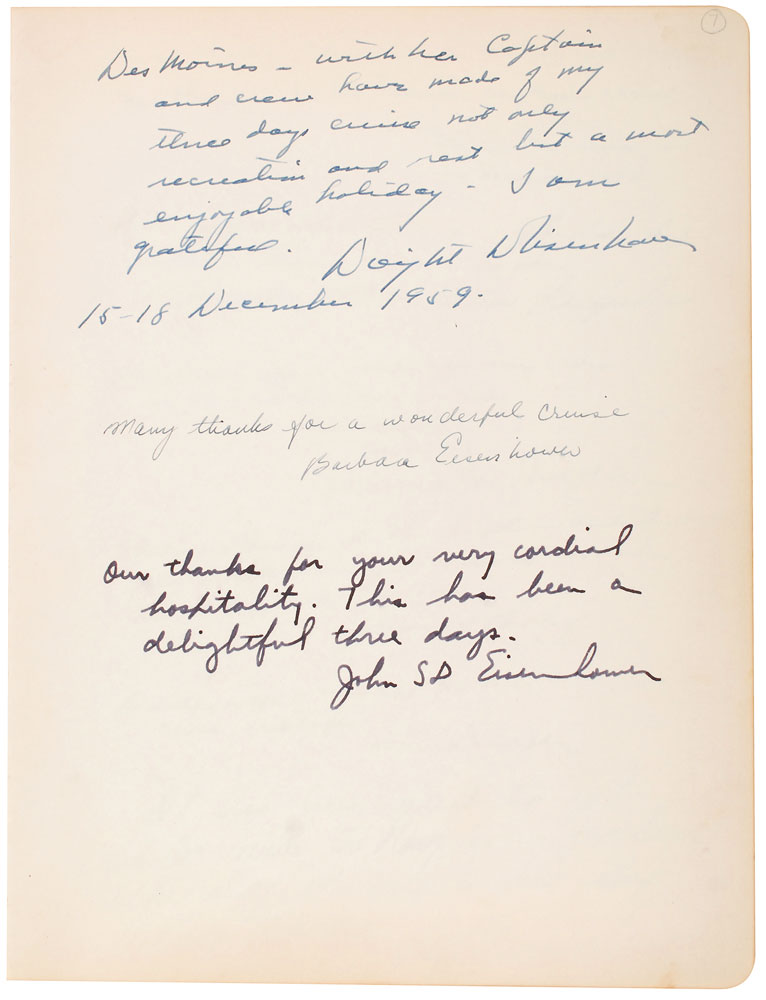 7
Des Moines – with her Captain
and crew have made of my
three days cruise not only
recreation and rest but a most
enjoyable holiday – I am
grateful. Dwight D Eisenhower
15–18 December 1959.
Many thanks for a wonderful cruise
Barbara Eisenhower
Our thanks for your very cordial
hospitality. This has been a
delightful three days.
John SD Eisenhower